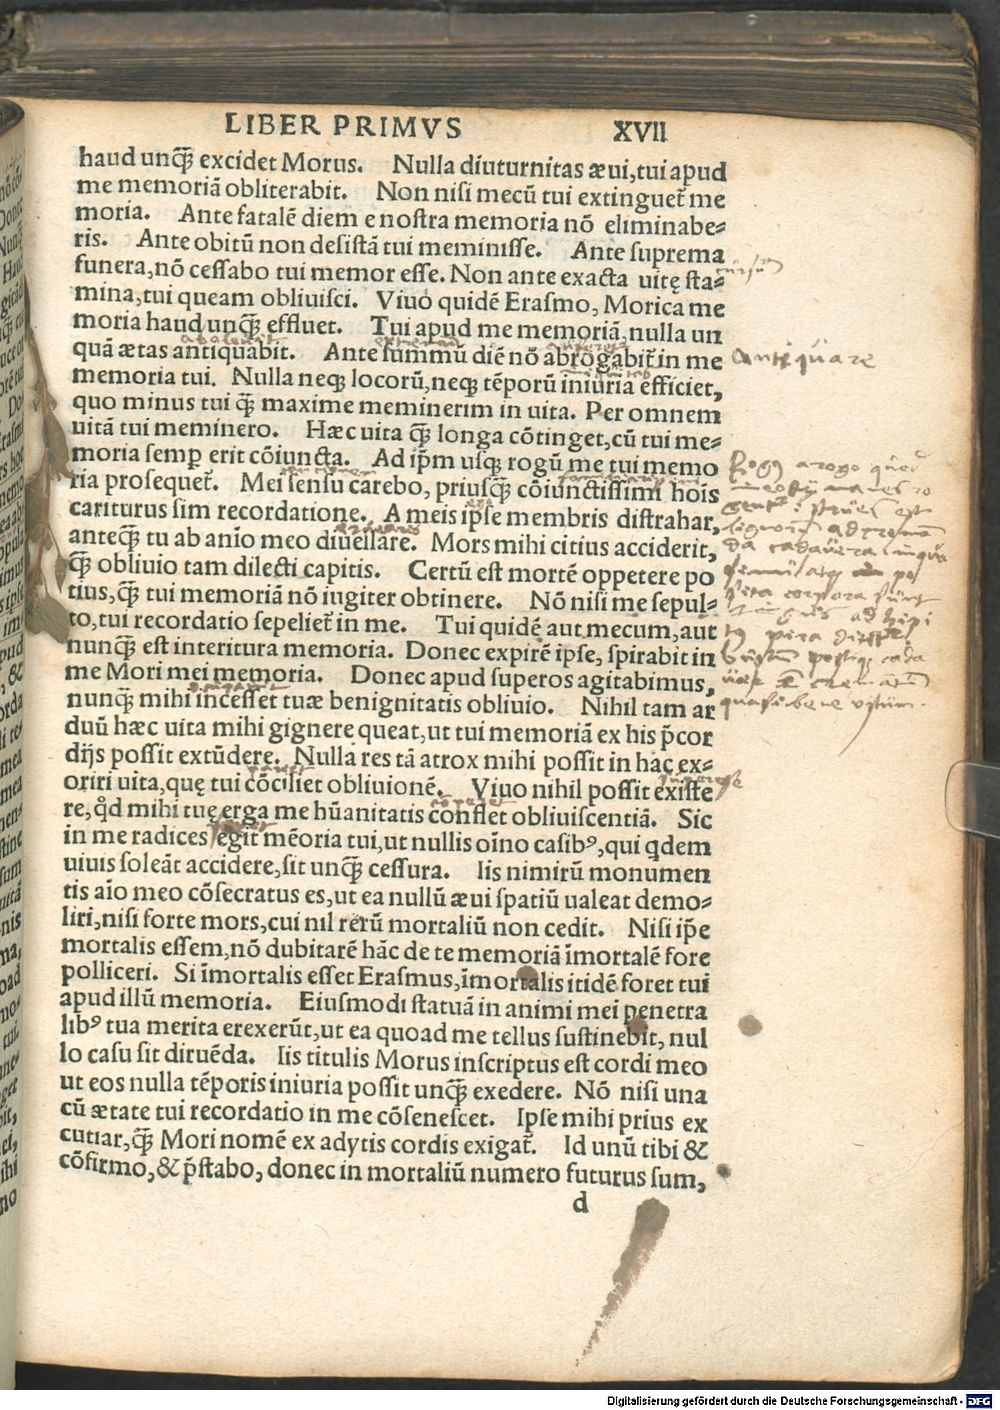 LIBER PRIMVS XVII
haud unq̃ꝫ excidet Morus. Nulla diuturnitas æui, tui apud
me memoriã obliterabit. Non nisi mecũ tui extinguet᷑ me
moria. Ante fatalẽ diem e nostra memoria nõ eliminabe⸗
ris. Ante obitũ non desistã tui meminisse. Ante suprema
funera, nõ cessabo tui memor esse. Non ante exacta uitę sta⸗
mina, tui queam obliuisci. Viuo quidẽ Erasmo, Morica me
moria haud unq̃ꝫ effluet. Tui apud me memoriã, nulla un
quã ætas antiquabit. Ante summũ diẽ nõ abrogabit᷑ in me
memoria tui. Nulla neqꝫ locorũ, neqꝫ tẽporũ iniuria efficiet,
quo minus tui q̃ꝫ maxime meminerim in uita. Per omnem
uitã tui meminero. Hæc uita q̃ꝫ longa cõtinget, cũ tui me⸗
moria semp erit cõiuncta. Ad ip̃m usqꝫ rogũ me tui memo
ria prosequet᷑. Mei sensu carebo, priusq̃ꝫ cõiunctissimi hois
cariturus sim recordatione. A meis ipse membris distrahar,
anteq̃ꝫ tu ab anio meo diuellare. Mors mihi citius acciderit,
q̃ꝫ obliuio tam dilecti capitis. Certũ est mortẽ oppetere po
tius, q̃ꝫ tui memoriã nõ iugiter obtinere. Nõ nisi me sepul⸗
to, tui recordatio sepeliet᷑ in me. Tui quidẽ aut mecum, aut
nunq̃ꝫ est interitura memoria. Donec expirẽ ipse, spirabit in
me Mori mei memoria. Donec apud superos agitabimus,
nunq̃ꝫ mihi incesset tuæ benignitatis obliuio. Nihil tam ar
duũ hæc uita mihi gignere queat, ut tui memoriã ex his p̃cor
dijs possit extũdere. Nulla res tã atrox mihi possit in hac ex⸗
oriri uita, quę tui cõciliet obliuionẽ. Viuo nihil possit existe
re, qd̉ mihi tuę erga me hũanitatis conflet obliuiscentiã. Sic
in me radices egit mẽoria tui, ut nullis oĩno casibꝰ, qui qdem
uiuis soleãt accidere, sit unq̃ꝫ cessura. Iis nimirũ monumen
tis aĩo meo cõsecratus es, ut ea nullũ æui spatiũ ualeat demo⸗
liri, nisi forte mors, cui nil rerũ mortaliũ non cedit. Nisi ip̃e
mortalis essem, nõ dubitarẽ hãc de te memoriã ĩmortalẽ fore
polliceri. Si ĩmortalis esset Erasmus, ĩmortalis itidẽ foret tui
apud illũ memoria. Eiusmodi statuã in animi mei penetra
libꝰ tua merita erexerũt, ut ea quoad me tellus sustinebit, nul
lo casu sit diruẽda. Iis titulis Morus inscriptus est cordi meo
ut eos nulla tẽporis iniuria possit unq̃ꝫ exedere. Nõ nisi una
cũ ætate tui recordatio in me cõsenescet. Ipse mihi prius ex
cutiar, q̃ꝫ Mori nomẽ ex adytis cordis exigat᷑. Id unũ tibi &
cõfirmo, & p̃stabo, donec in mortaliũ numero futurus sum,
d
antiquare
Digitalisierung gefördert durch die Deutsche Forschungsgemeinschaft - DFG